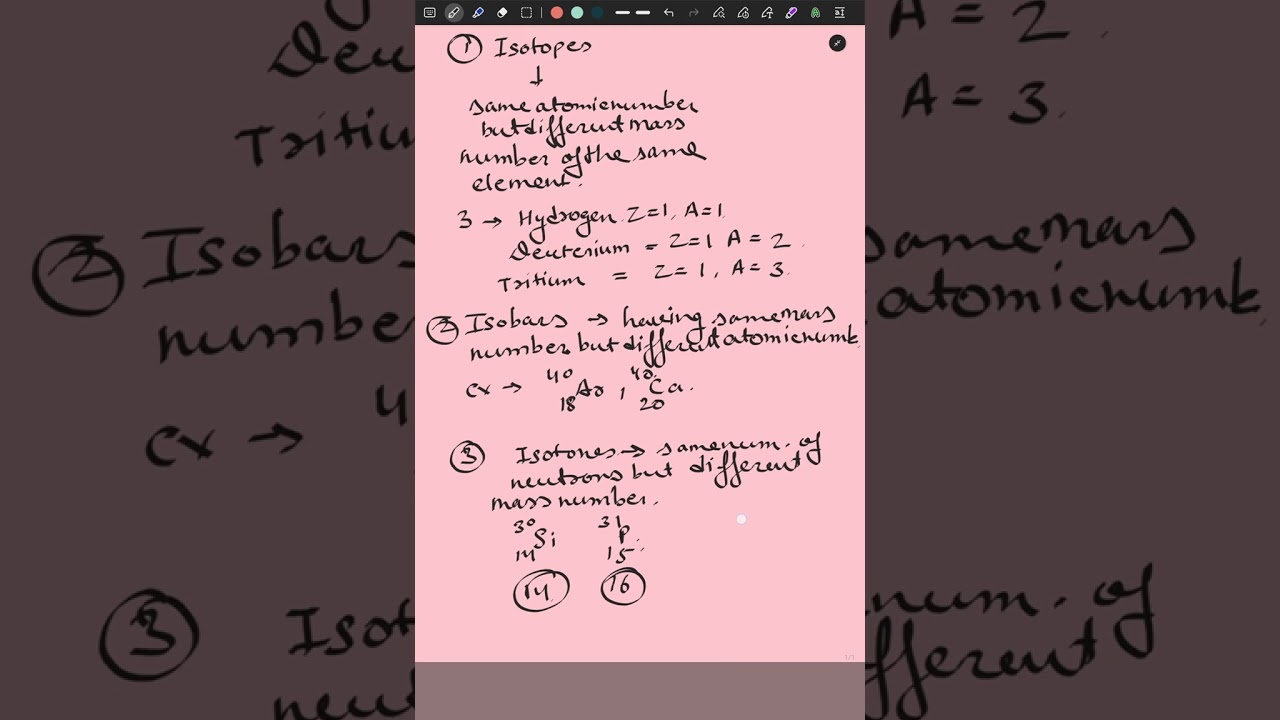 ① Isotopes
↓
same atomic number
but different mass
number of the same
element.
3 → Hydrogen Z=1, A=1
Deuterium = Z=1 A=2
Tritium = Z=1, A=3
② Isobars → having same mass
number but different atomic numb
ex → ⁴⁰₁₈Ar, ⁴⁰₂₀Ca.
③ Isotones → same num. of
neutrons but different
mass number.
³⁰₁₄Si ³¹₁₅P
14 16
1/1